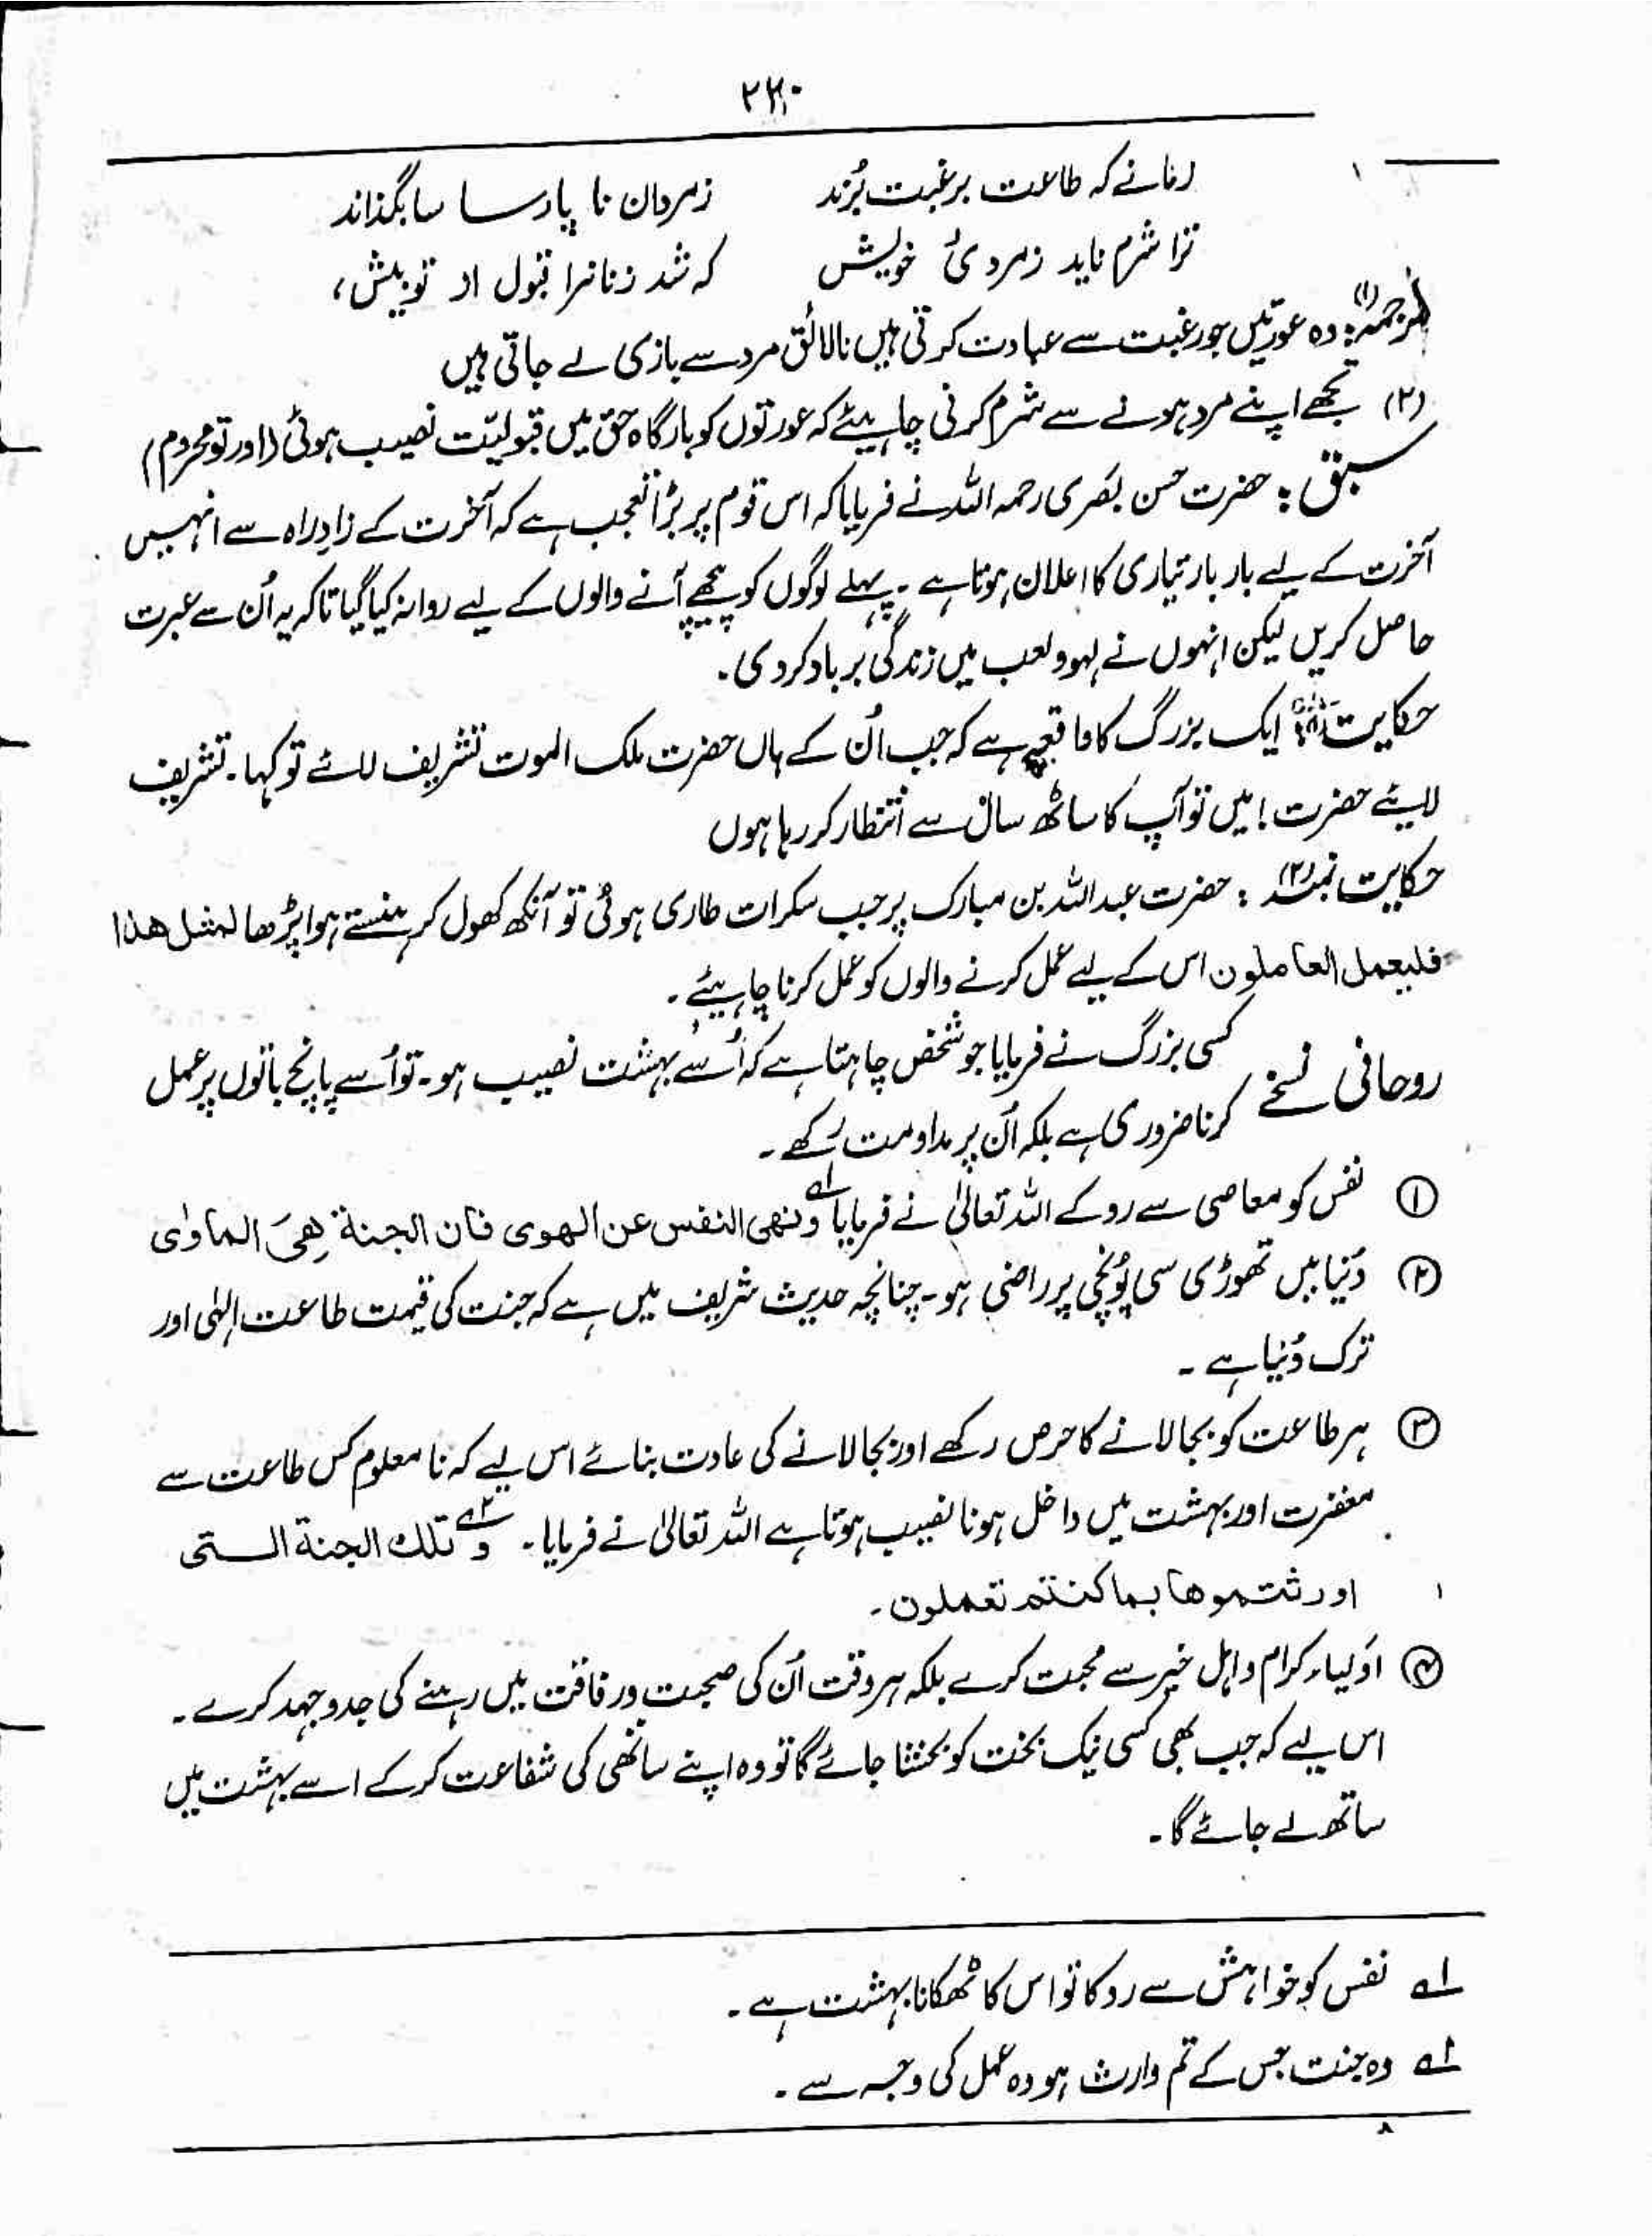 ۲۳۰
زنانے کہ طاعت برغبت بُرند زمردان نا پارسا سا بگذاند
ترا شرم ناید زمردیٔ خویش کہ شد زنانرا قبول از تو بیش،
ترجمہ: (۱) وہ عورتیں جو رغبت سے عبادت کرتی ہیں نالائق مرد سے بازی لے جاتی ہیں
(۲) تجھے اپنے مرد ہونے سے شرم کرنی چاہیئے کہ عورتوں کو بارگاہ حق میں قبولیّت نصیب ہوئی (اور تو محروم)
سبق : حضرت حسن بصری رحمہ اللہ نے فرمایا کہ اس قوم پر بڑا تعجب ہے کہ آخرت کے زادِ راہ سے انہیں
آخرت کے لیے بار بار تیاری کا اعلان ہوتا ہے ۔ پہلے لوگوں کو پیچھے آنے والوں کے لیے روانہ کیا گیا تاکہ یہ اُن سے عبرت
حاصل کریں لیکن انہوں نے لہو و لعب میں زندگی برباد کر دی ۔
حکایت ایک بزرگ کا واقعہ ہے کہ جب اُن کے ہاں حضرت ملک الموت تشریف لائے تو کہا ۔ تشریف
لایئے حضرت ! میں تو آپ کا ساٹھ سال سے انتظار کر رہا ہوں
حکایت نمبر (۲) : حضرت عبد اللہ بن مبارک پر جب سکرات طاری ہوئی تو آنکھ کھول کر ہنستے ہوا پڑھا لمثل هذا
فلیعمل العاملون اس کے لیے عمل کرنے والوں کو عمل کرنا چاہیئے ۔
روحانی نسخے کسی بزرگ نے فرمایا جو شخص چاہتا ہے کہ اُسے بہشت نصیب ہو ۔ تو اُسے پانچ باتوں پر عمل
کرنا ضروری ہے بلکہ اُن پر مداومت رکھے ۔
① نفس کو معاصی سے روکے اللہ تعالیٰ نے فرمایا ؎۱ ونھی النفس عن الھوی فان الجنة ھِیَ الماوٰی
② دُنیا میں تھوڑی سی پُونجی پر راضی ہو ۔ چنانچہ حدیث شریف میں ہے کہ جنت کی قیمت طاعت الٰہی اور
ترک دُنیا ہے ۔
③ ہر طاعت کو بجا لانے کا حرص رکھے اور بجا لانے کی عادت بنائے اس لیے کہ نا معلوم کس طاعت سے
مغفرت اور بہشت میں داخل ہونا نصیب ہوتا ہے اللہ تعالیٰ نے فرمایا ۔ ؎۲ و تلك الجنة الستی
اورثتموھا بما كنتم تعملون ۔
④ اَولیاء کرام و اہل خیر سے محبت کرے بلکہ ہر وقت اُن کی صحبت و رفاقت میں رہنے کی جدو جہد کرے ۔
اس لیے کہ جب بھی کسی نیک بخت کو بخشا جائے گا تو وہ اپنے ساتھی کی شفاعت کر کے اسے بہشت میں
ساتھ لے جائے گا ۔
؎۱ نفس کو خواہش سے روکا تو اس کا ٹھکانا بہشت ہے ۔
؎۱ وہ جنت جس کے تم وارث ہو وہ عمل کی وجہ سے ۔